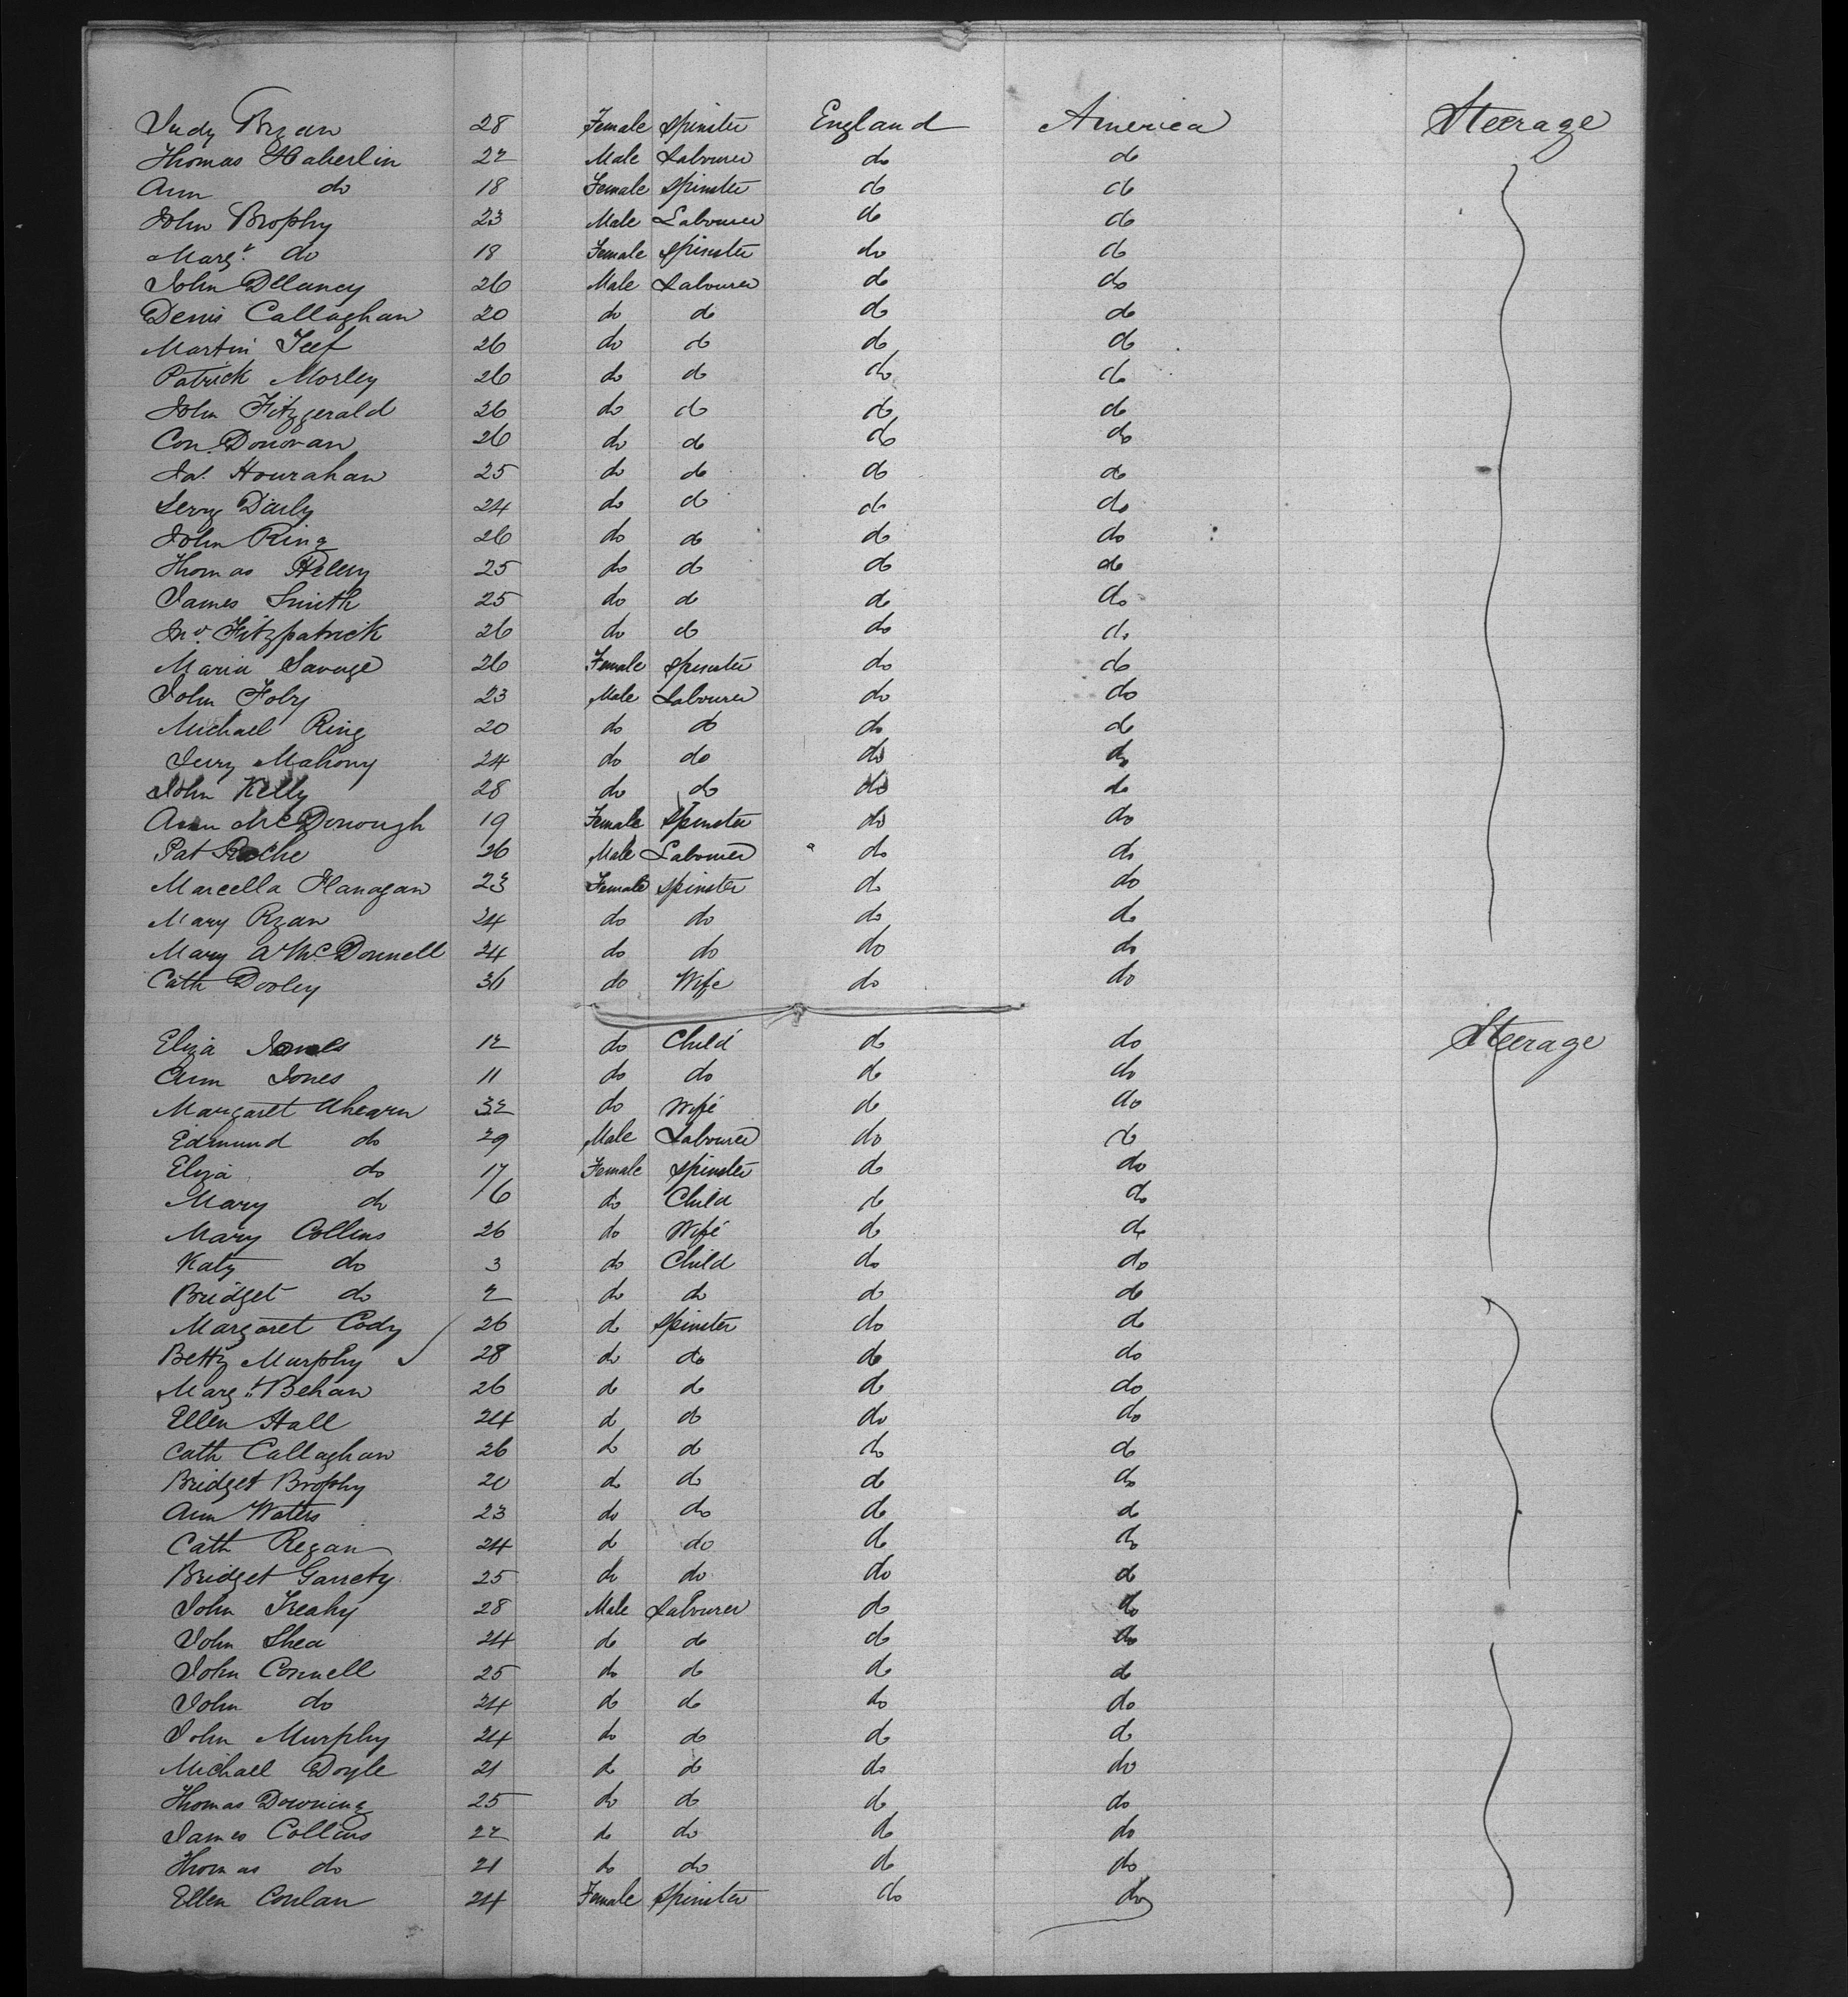 Judy Bryan 28 Female Spinster England America Steerage
Thomas Haberlin 22 Male Labourer do do
Ann do 18 Female Spinster do do
John Brophy 23 Male Labourer do do
Margt. do 18 Female Spinster do do
John Delaney 26 Male Labourer do do
Denis Callaghan 20 do do do do
Martin Teef 26 do do do do
Patrick Morley 26 do do do do
John Fitzgerald 26 do do do do
Con. Donovan 26 do do do do
Jas. Hourahan 25 do do do do
Jerry Daily 24 do do do do
John Ring 26 do do do do
Thomas 25 do do do do
James Smith 25 do do do do
Jno. Fitzpatrick 26 do do do do
Maria Savage 26 Female Spinster do do
John Foby 23 Male Labourer do do
Michael Ring 20 do do do do
Jerry Mahony 24 do do do do
John Kelly 28 do do do do
Ann McDonough 19 Female Spinster do do
Pat Roche 26 Male Labourer do do
Marcella Flanagan 23 Female Spinster do do
Mary Ryan 24 do do do do
Mary A McDonnell 24 do do do do
Cath Dooley 36 do Wife do do
Eliza Jones 12 do Child do do Steerage
Ann Jones 11 do do do do
Margaret Ahearn 32 do Wife do do
Edmund do 29 Male Labourer do do
Eliza do 17 Female Spinster do do
Mary do /6 do Child do do
Mary Collins 26 do Wife do do
Katy do 3 do Child do do
Bridget do 2 do do do do
Margaret Cody 26 do Spinster do do
Betty Murphy 28 do do do do
Margt. Behan 26 do do do do
Ellen Hall 24 do do do do
Cath Callaghan 26 do do do do
Bridget Brophy 20 do do do do
Ann Waters 23 do do do do
Cath Regan 24 do do do do
Bridget Garrety 25 do do do do
John Treahy 28 Male Labourer do do
John Shea 24 do do do do
John Connell 25 do do do do
John do 24 do do do do
John Murphy 24 do do do do
Michael Doyle 21 do do do do
Thomas Downing 25 do do do do
James Collins 22 do do do do
Thomas do 21 do do do do
Ellen Conlan 24 Female Spinster do do